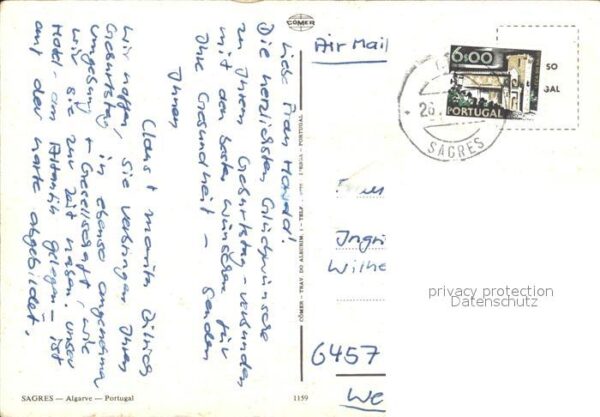 CÓMER
Liebe Frau Howald!
Die herzlichsten Glückwünsche
zu Ihrem Geburtstag - verbunden
mit den besten Wünschen für
Ihre Gesundheit - senden
Ihnen
Claus + Marita
Wir hoffen, Sie verbringen Ihren
Geburtstag in ebenso angenehmer
Umgebung + Gesellschaft, wie
wir sie zur Zeit haben. Unser
Hotel - am Atlantik gelegen - ist
auf der Karte abgebildet.
SAGRES — Algarve — Portugal
1159
CÓMER — TRAV. DO ALECRIM, 1 — TELF.
PORTUGAL
Air Mail
6$00
PORTUGAL
SO
GAL
26
SAGRES
Frau
Ingri
Wilhe
6457
We
privacy protection
Datenschutz